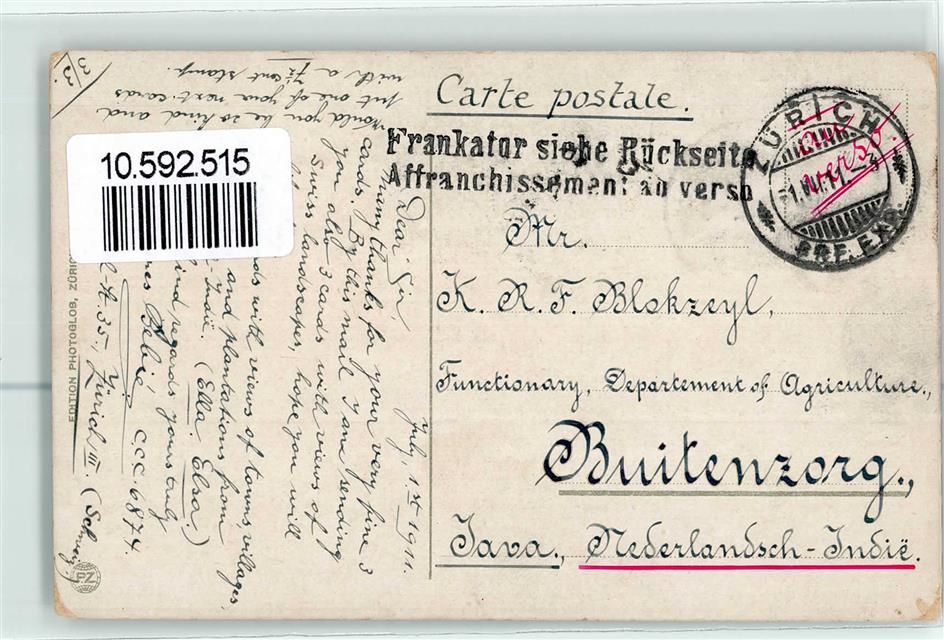 Carte postale.
Frankatur siehe Rückseite
Affranchissement au verso
ZÜRICH
1.VII.11.
BRF. EXP.
verso.
Mr.
K. R. F. Blokzeyl,
Functionary, Departement of Agriculture,
Buitenzorg,
Java, Nederlandsch-Indië.
July, 1st 1911.
Dear Sir
many thanks for your very fine 3
cards. By this mail I am sending
you also 3 cards with views of
Swiss landscapes, hope you will
with views of towns, villages,
and plantations from
Indië. (Ella. Elsa.)
kind regards yours truly
C.C.C. 6874.
35, Zürich III. (Schweiz.)
Would you be so kind and
put one of your next cards
with a 7½ cent stamp.
3/3.
10.592.515
EDITION PHOTOGLOB, ZÜRICH
P.Z.